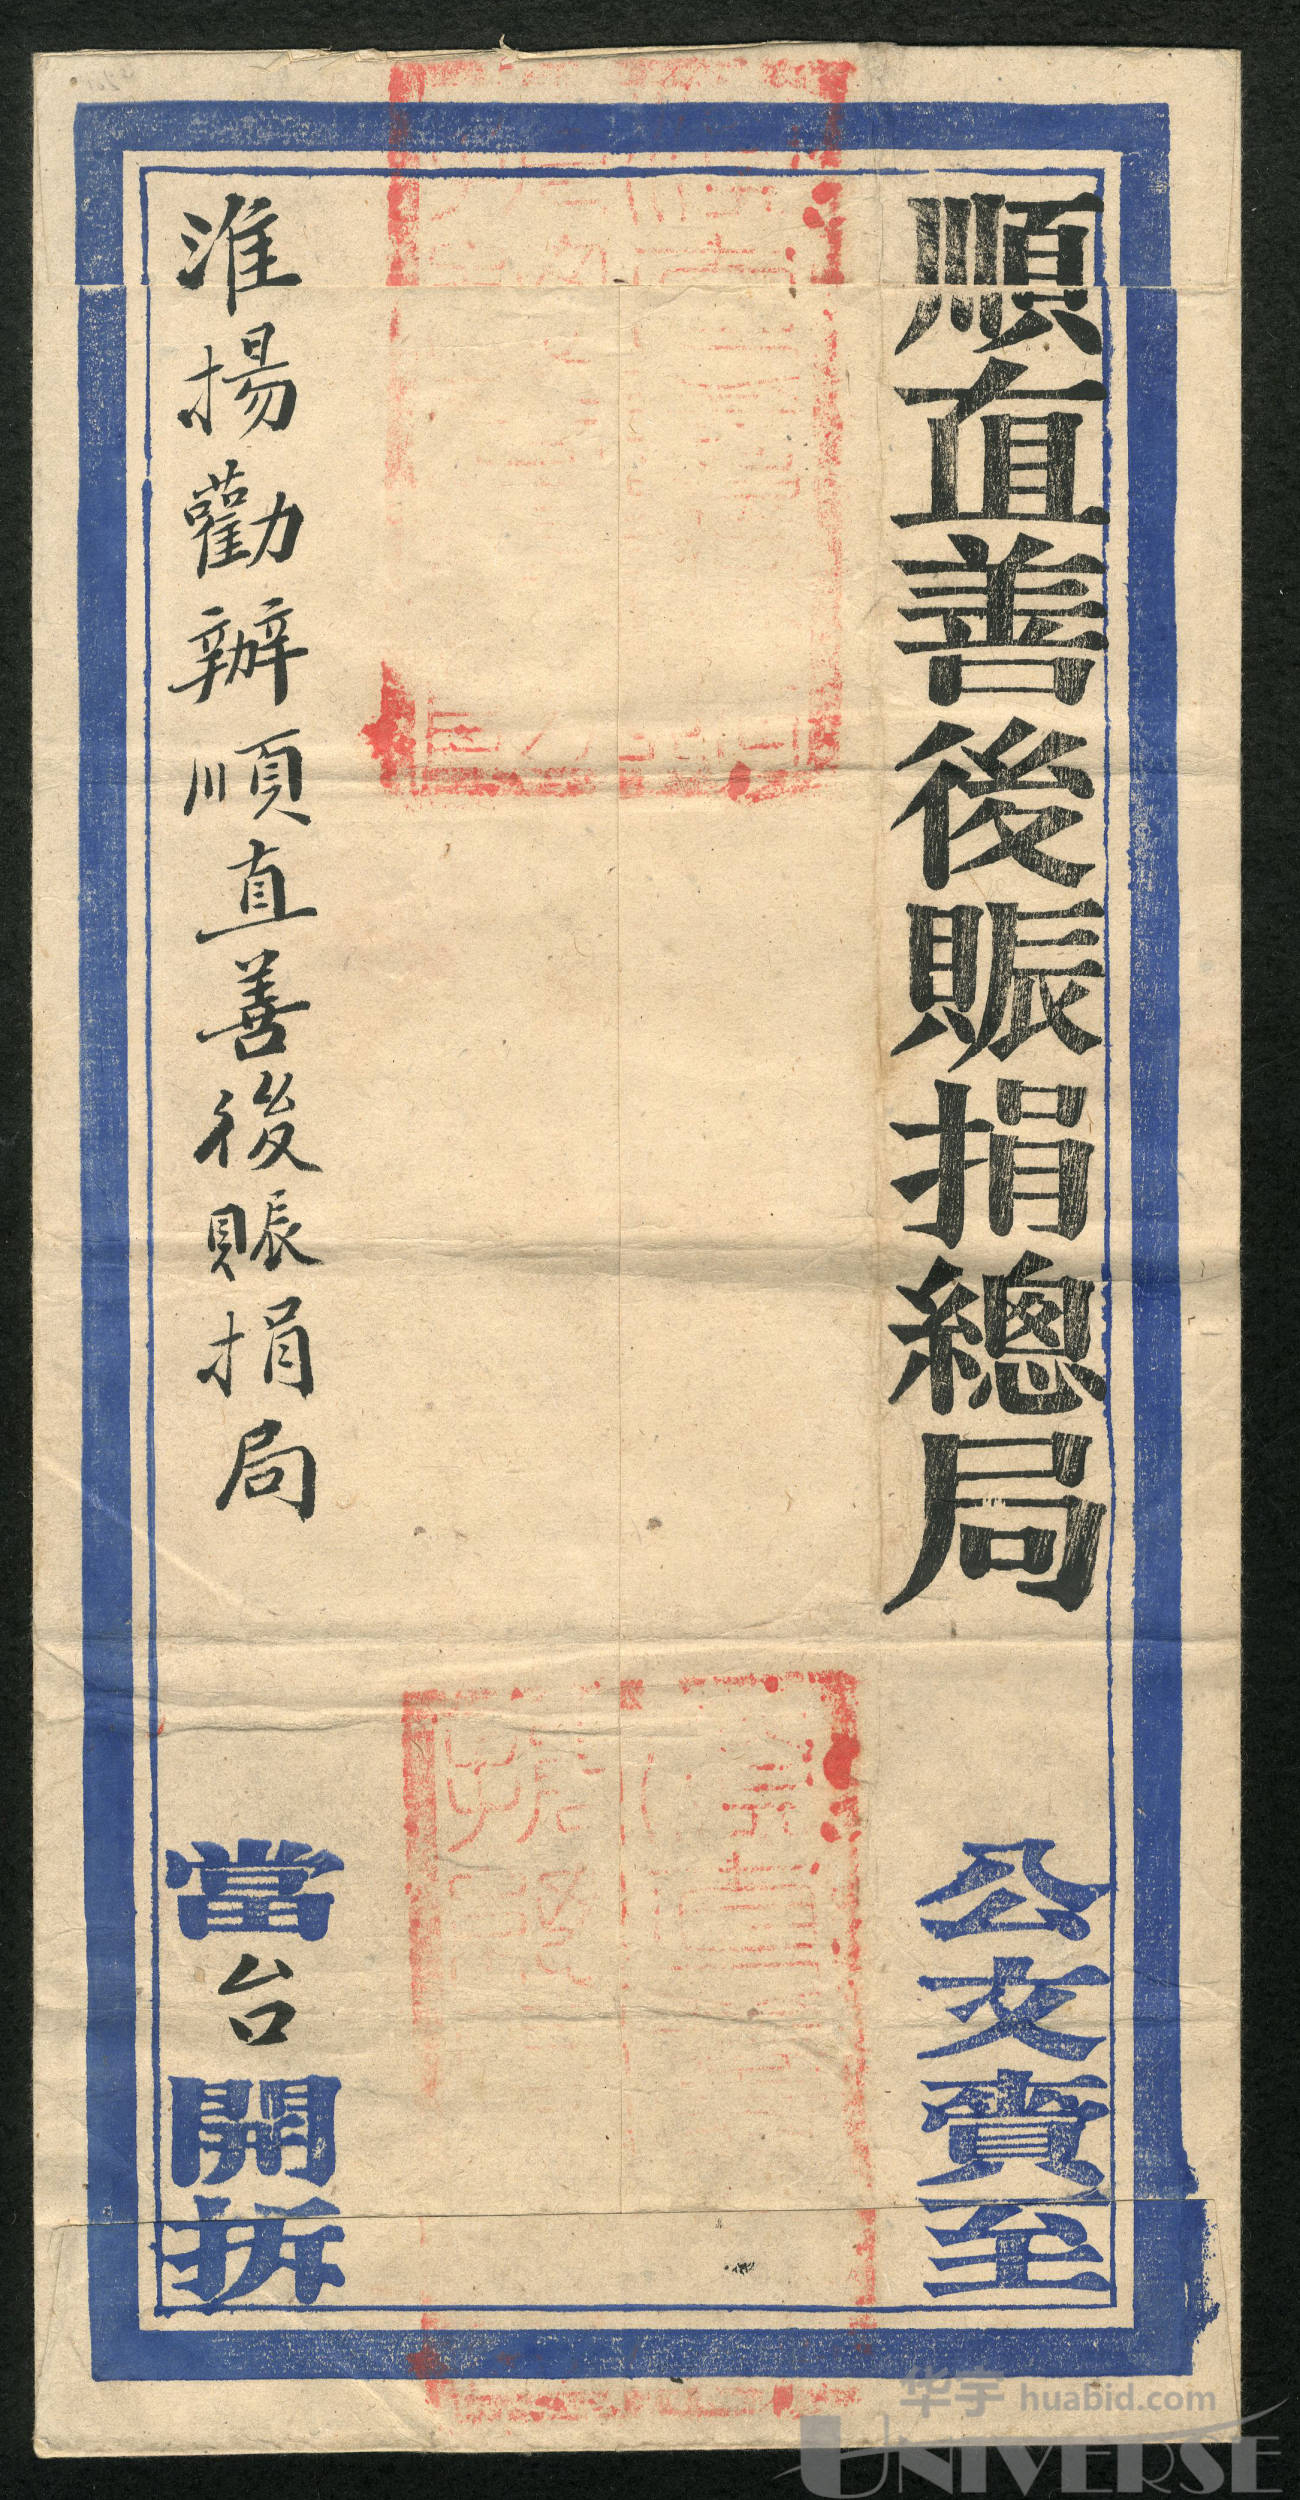 順直善後賬捐總局
公文賫至
淮揚勸辦順直善後賬捐局
當台開拆
华宇 huabid.com
UNIVERSE